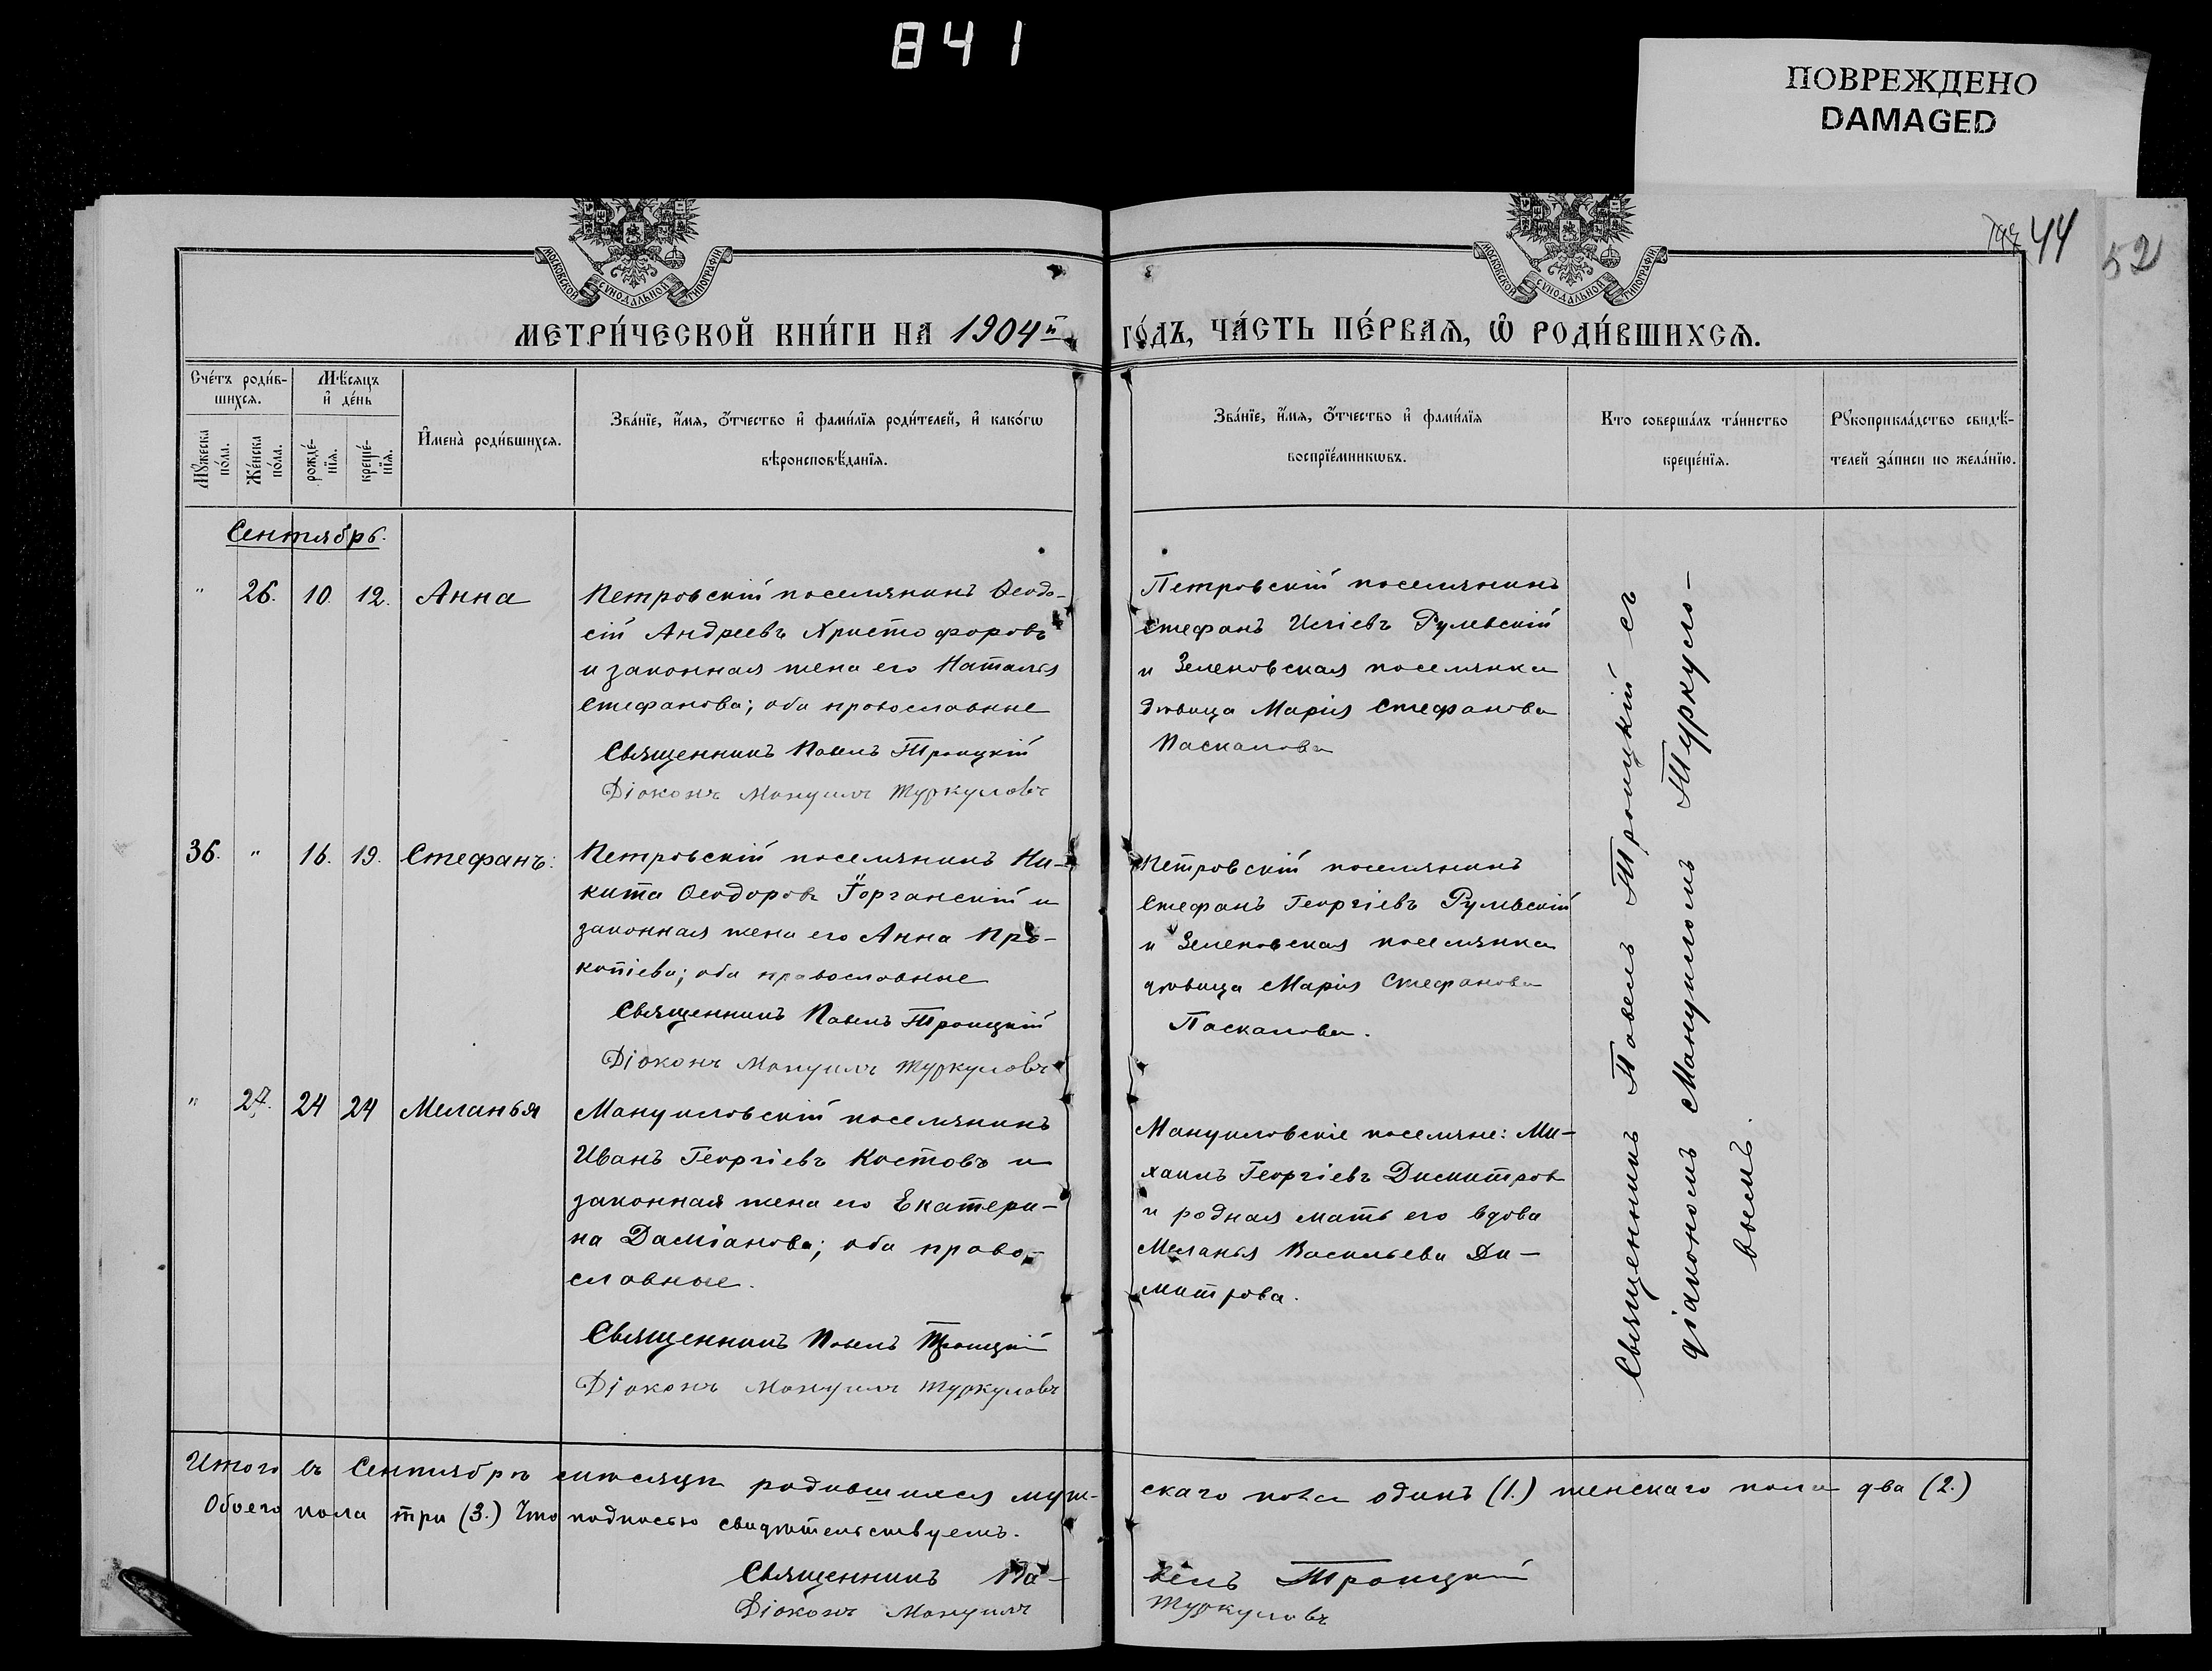 841
ПОВРЕЖДЕНО
DAMAGED
44
52
МОСКОВСКОЙ СѴНОДАЛЬНОЙ ТИПОГРАФІИ
МОСКОВСКОЙ СѴНОДАЛЬНОЙ ТИПОГРАФІИ
МЕТРИ́ЧЕСКОЙ КНИ́ГИ НА 1904й
ГО́ДЪ, ЧА́СТЬ ПЕ́РВАѦ, Ѡ РОДИ́ВШИХСѦ.
Сче́тъ роди́в-
шихся.
Мѣ́сяцъ
и де́нь
Мꙋ́жеска
по́ла.
Же́нска
по́ла.
рожде́-
нїя.
креще́-
нїя.
Имена̀ роди́вшихся.
Зва́нїе, и́мя, ѻ҆́тчество и фами́лїя роди́телей, и како́гѡ
вѣроисповѣ́данїя.
Зва́нїе, и́мя, ѻ҆́тчество и фами́лїя
воспрїе́мникѡвъ.
Кто совершáлъ тáинство
креще́нїя.
Рꙋкоприклáдство свидѣ́-
телей зáписи по желáнїю.
Сентябрь.
" 26. 10. 12. Анна
Петровскій поселянинъ Ѳеодо-
сій Андреевъ Христофоровъ
и законная жена его Наталья
Стефанова; оба православные
Священникъ Павелъ Троицкій
Діаконъ Мануилъ Туркуловъ
Петровскій поселянинъ
Стефанъ Рулевскій
и Зеленовская поселянка
дѣвица Марія Стефанова
Паскалова
36. " 16. 19. Стефанъ.
Петровскій поселянинъ Ни-
кита Ѳеодоровъ Горганскій и
законная жена его Анна Про-
копіева; оба православные
Священникъ Павелъ Троицкій
Діаконъ Мануилъ Туркуловъ
Петровскій поселянинъ
Стефанъ Георгіевъ Рулевскій
и Зеленовская поселянка
дѣвица Марія Стефанова
Паскалова.
" 27. 24 24 Меланья
Мануиловскій поселянинъ
Иванъ Георгіевъ Костовъ и
законная жена его Екатери-
на Даміанова; оба право-
славные.
Священникъ Павелъ Троицкій
Діаконъ Мануилъ Туркуловъ
Мануиловскіе поселяне: Ми-
хаилъ Георгіевъ Димитров
и родная мать его вдова
Меланья Васильева Ди-
митрова.
Священникъ Павелъ Троицкій съ
діакономъ Мануиломъ Туркуло-
вымъ.
Итого въ Сентябрѣ мѣсяцѣ родившихся муж-
скаго пола одинъ (1.) женскаго пола два (2.)
Обоего пола три (3.) Что подписью свидѣтельствуемъ.
Священникъ Па-
велъ Троицкій
Діаконъ Мануилъ
Туркуловъ